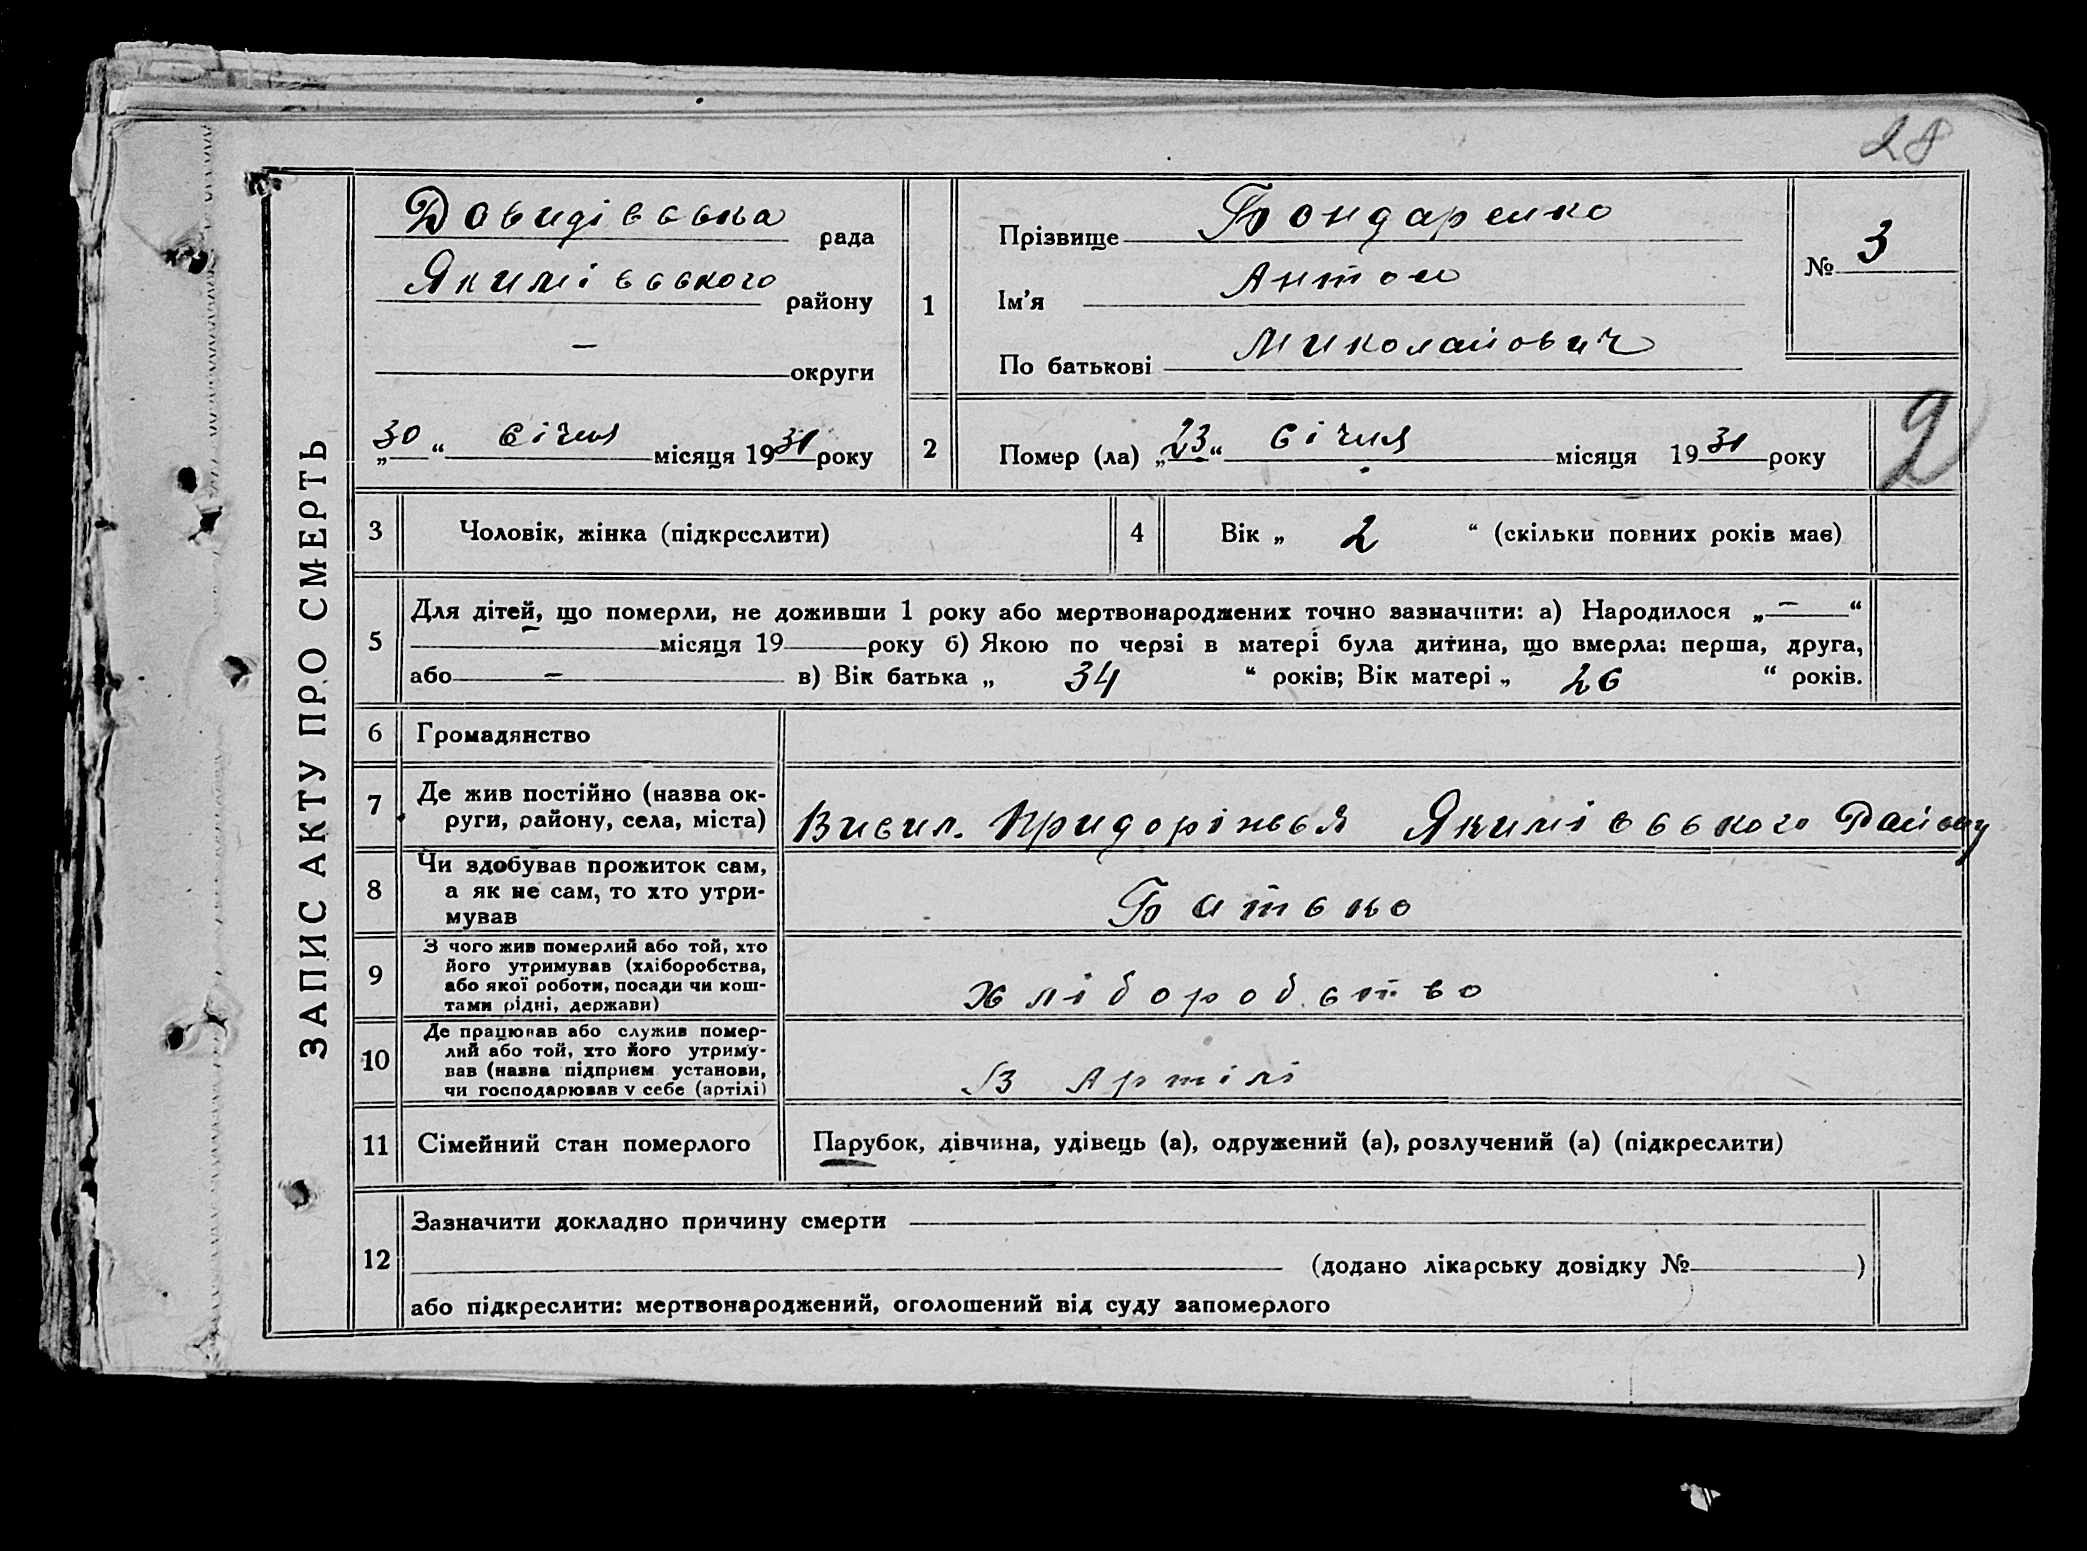 28
ЗАПИС АКТУ ПРО СМЕРТЬ
Довидівська рада
Якимівського району
— округи
„30“ січня місяця 1931 року
1
Прізвище Бондаренко
Ім'я Антон
По батькові Миколайович
№ 3
2
Помер (ла) „23“ січня місяця 1931 року
2
3 Чоловік, жінка (підкреслити)
4 Вік „ 2 “ (скільки повних років має)
5
Для дітей, що померли, не доживши 1 року або мертвонароджених точно зазначити: а) Народилося „—“
— місяця 19 року б) Якою по черзі в матері була дитина, що вмерла: перша, друга,
або — в) Вік батька „ 34 “ років; Вік матері „ 26 “ років.
6 Громадянство
7
Де жив постійно (назва ок-
руги, району, села, міста)
Висил. Придоріжься Якимівського Району
8
Чи здобував прожиток сам,
а як не сам, то хто утри-
мував
Батько
9
З чого жив померлий або той, хто
його утримував (хліборобства,
або якої роботи, посади чи кош-
тами рідні, держави)
хліборобство
10
Де працював або служив помер-
лий або той, хто його утриму-
вав (назва підприєм установи,
чи господарював у себе (артілі)
В Артілі
11 Сімейний стан померлого
Парубок, дівчина, удівець (а), одружений (а), розлучений (а) (підкреслити)
12
Зазначити докладно причину смерти
(додано лікарську довідку № )
або підкреслити: мертвонароджений, оголошений від суду запомерлого